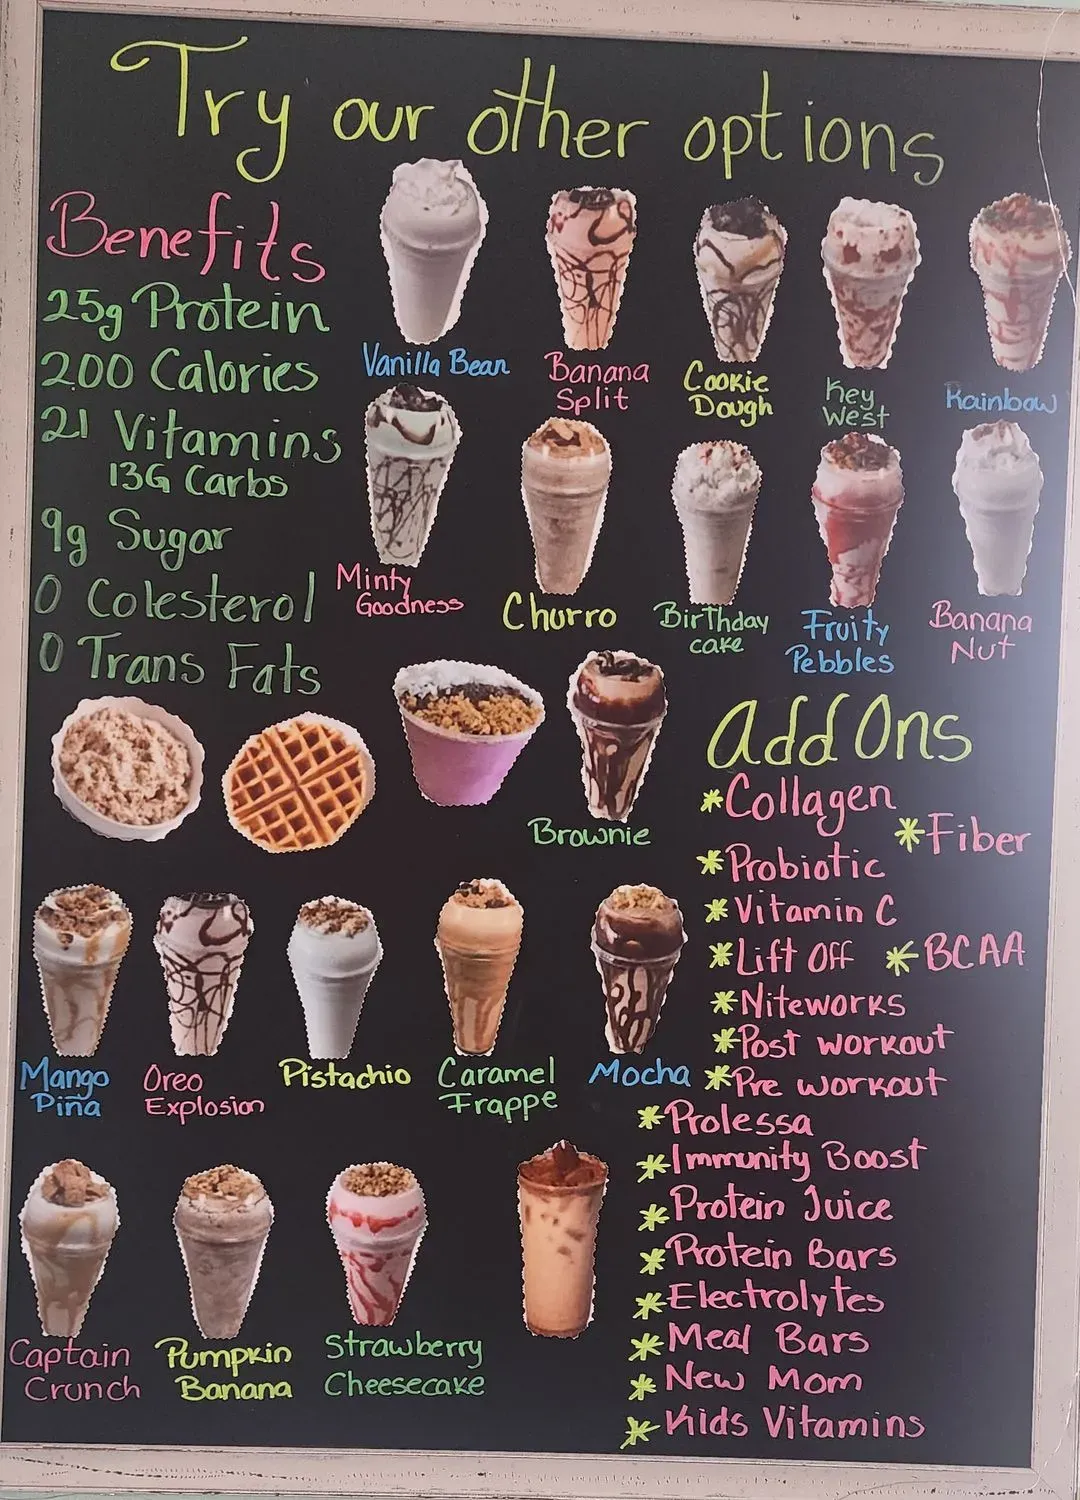 Try our other options
Benefits
25g Protein
200 Calories
21 Vitamins
13G Carbs
9g Sugar
0 Colesterol
0 Trans Fats
Vanilla Bean
Banana
Split
Cookie
Dough
Key
West
Rainbow
Minty
Goodness
Churro
Birthday
cake
Fruity
Pebbles
Banana
Nut
Brownie
Mango
Piña
Oreo
Explosion
Pistachio
Caramel
Frappe
Mocha
Captain
Crunch
Pumpkin
Banana
Strawberry
Cheesecake
add Ons
*Collagen
*Fiber
*Probiotic
*Vitamin C
*Lift Off *BCAA
*Niteworks
*Post workout
*Pre workout
*Prolessa
*Immunity Boost
*Protein Juice
*Protein Bars
*Electrolytes
*Meal Bars
*New Mom
*Kids Vitamins